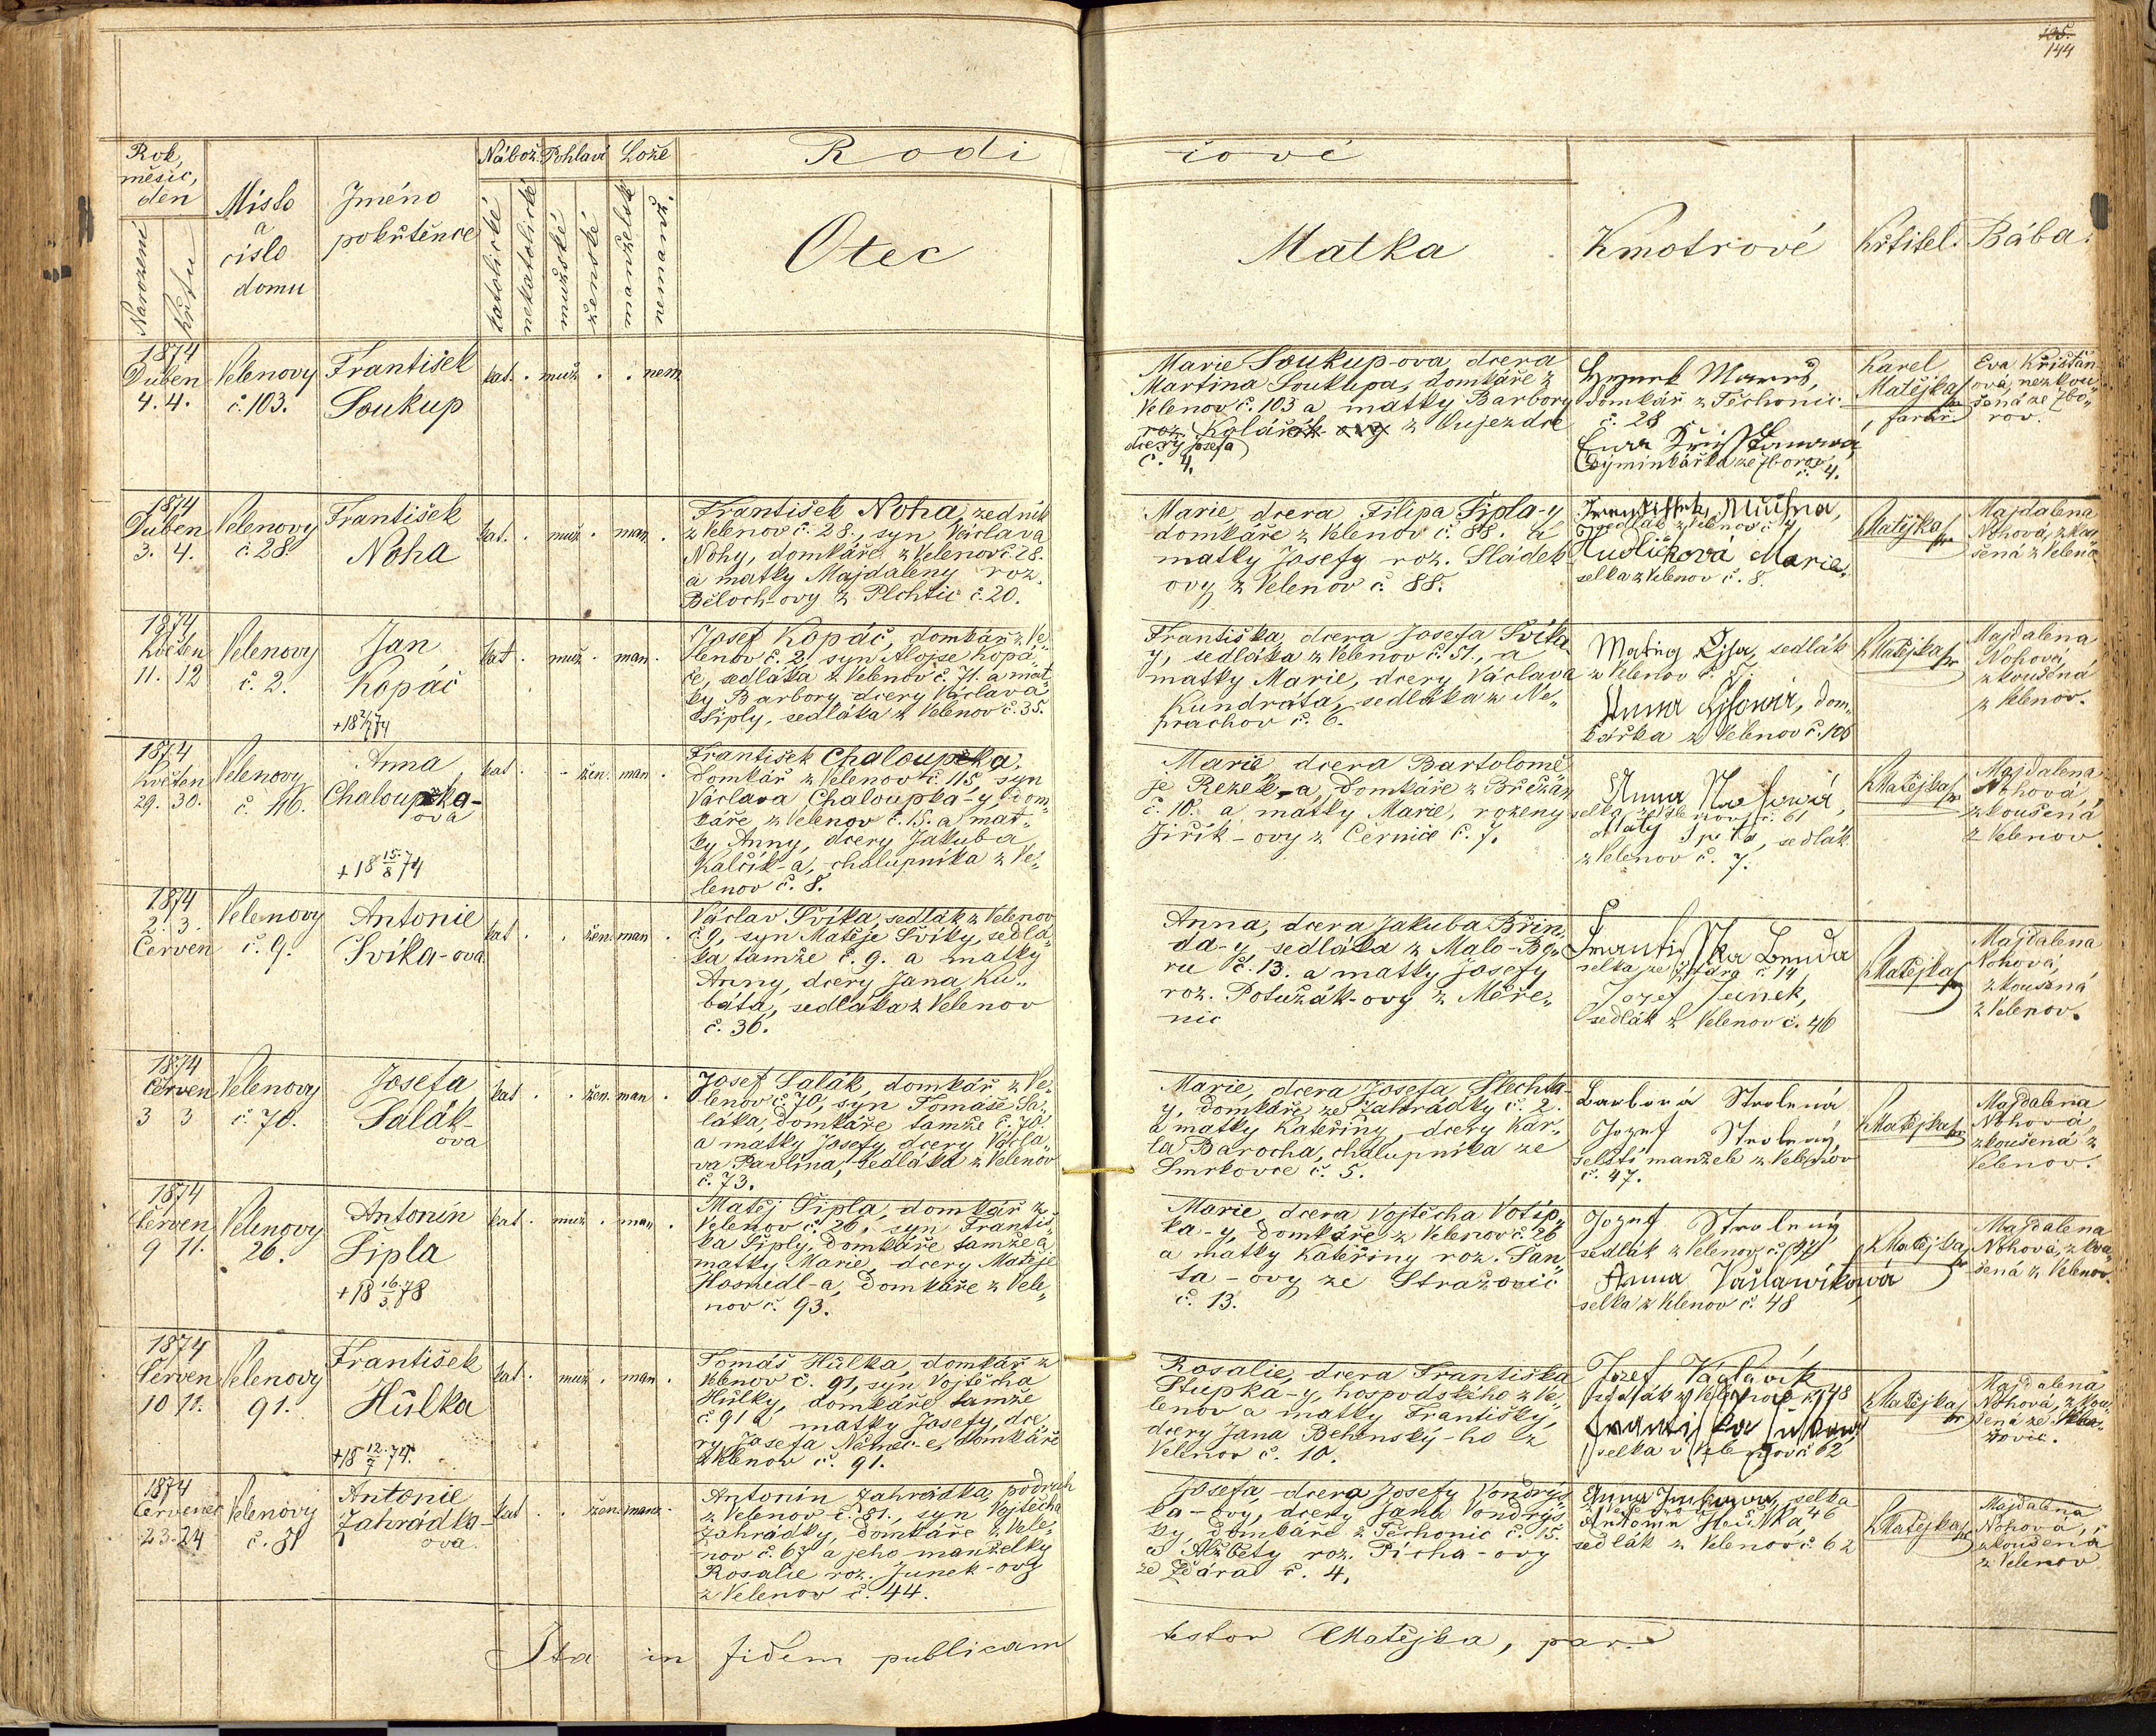 135.
144
Rok,
měsíc,
den
Narození
křtu
Místo
a
číslo
domu
Jméno
pokřtěnce
Nábož.
katolické
nekatolické
Pohlaví
mužské
ženské
Lože
manželské
nemanž.
Rodi čové
Otec
Matka
Kmotrové
Křtitel.
Bába.
1874
Duben
4. 4.
Velenovy
č. 103.
František
Soukup
kat. . muž . . nem.
Marie Soukup-ova, dcera
Martina Soukupa, domkáře z
Velenov č. 103 a matky Barbory
roz. Kolář z Oujezdce
dcery Josefa
č. 4.
domkář z Těchonic
č. 28
výminkářka ze Zborov
č. 4.
Karel
Matějka
farář.
Eva Křišťan
ová, nezkou„
šená ze Zbo„
rov.
1874
Duben
3. 4.
Velenovy
č. 28.
František
Noha
kat. . muž . man. .
František Noha, zedník
z Velenov č. 28., syn Václava
Nohy, domkáře z Velenov č. 28.
a matky Majdaleny roz.
Běloch-ovy z Plchtic č. 20.
Marie, dcera Filipa Šipla-y
domkáře z Velenov č. 88. a
matky Josefy roz. Sládek
ovy z Velenov č. 88.
sedlák z Velenov č. 4
Hudličková Marie,
selka z Velenov č. 8.
KMatějka
Majdalena
Nohová, zkou
šená z Velena
1874
Květen
11. 12
Velenovy
č. 2.
Jan
Kopáč
kat . muž . man .
Josef Kopáč, domkář z Ve„
lenov č. 2, syn Aloise Kopá„
če, sedláka z Velenov č. 71. a mat
ky Barbory dcery Václava
Šiply, sedláka z Velenov č. 35.
Františka, dcera Josefa Švíka
y, sedláka z Velenov č. 51., a
matky Marie, dcery Václava
Kundrata, sedláka z Ne„
prachov č. 6.
sedlák
z Velenov č. 7.
Anna dom„
kářka z Velenov č. 106
KMatějka
Majdalena
Nohová
zkoušená
z Velenov.
1874
Květen
29. 30.
Velenovy
Anna
Chaloupka-
ova
+ 18 15/8 74
kat . . žen. man. .
František Chaloupka,
domkář z Velenov č. 115, syn
Václava Chaloupka-y, dom„
káře z Velenov č. 15. a mat„
ky Anny, dcery Jakuba
Kalčík-a, chalupníka z Ve„
lenov č. 8.
Marie dcera Bartolomě
je Řezek-a, domkáře z Břežan
č. 10. a matky Marie, rozeny
Jiřík-ovy z Černice č. 7.
Anna
selka z Velenov č. 61
sedlák
z Velenov č. 7.
KMatějka
Majdalena
Nohová,
zkoušená
z Velenov.
1874
2. 3.
Červen
Velenovy
č. 9.
Antonie
Švíka-ova
kat . . žen. man .
Václav Švíka, sedlák z Velenov
č. 9, syn Matěje Švíky, sedlá„
ka tamže č. 9. a matky
Anny, dcery Jana Ku„
báta, sedláka z Velenov
č. 36.
Anna, dcera Jakuba Břin„
da-y sedláka z Malo-Bo„
ru č. 13. a matky Josefy
roz. Potužák-ovy z Měře„
nic
Františka Benda
č. 14
Jozef Jeinek,
sedlák z Velenov č. 46
KMatějka
Majdalena
Nohová,
zkoušená
z Velenov.
1874
Červen
3 3
Velenovy
č. 70.
Josefa
Salák-
ova
kat . . žen. man .
Josef Salák, domkář z Ve„
lenov č. 70, syn Tomáše Sa„
láka, domkáře tamže č. 70.
a matky Josefy, dcery Václa„
va Pavlína, sedláka z Velenov
č. 73.
Marie, dcera Josefa Šlechta-
y, domkáře ze Zahrádky č. 2.
a matky Kateřiny, dcery Kar„
la Barocha, chalupníka ze
Smrkovce č. 5.
Barbora Strolená
Jozef Strolený,
selští manželé z Velenov
č. 47.
KMatějka
Majdalena
Nohová,
zkoušená z
Velenov.
1874
Červen
9 11.
Velenovy
26.
Antonín
Šipla
+ 18 16/3 78
kat . muž . man .
Matěj Šipla, domkář z
Velenov č. 26, syn Františ„
ka Šiply, domkáře tamže a
matky Marie, dcery Matěje
Hosnedl-a, domkáře z Vele„
nov č. 93.
Marie, dcera Vojtěcha Votip„
ka-y, domkáře z Velenov č. 26
a matky Kateřiny roz. Šan„
ta-ovy ze Stražovic
č. 13.
Jozef Strolený
sedlák z Velenov č. 47
Anna Vaslawíkowá
selka z Velenov č. 48
KMatějka
Majdalena
Nohová, zkou
šená z Velenov.
1874
Červen
10 11.
Velenovy
91.
František
Hůlka
+ 18 12/7 74.
kat . muž . man .
Tomáš Hůlka, domkář z
Velenov č. 91, syn Vojtěcha
Hůlky, domkáře tamže
č. 91 a matky Josefy, dce„
ry Josefa Němec-e, domkáře
z Velenov č. 91.
Rosalie, dcera Františka
Stupka-y, hospodského z Ve„
lenov a matky Františky,
dcery Jana Běhenský-ho z
Velenov č. 10.
Jozef Waclavík
48
selka v Velenov č. 62
KMatějka
Majdalena
Nohová, zkou„
šená ze
1874
Červenec
23. 24
Velenovy
č. 81
Antonie
Zahrádka-
ova.
kat . . žen. manž.
Antonín Zahrádka, podruh
z Velenov č. 81., syn Vojtěcha
Zahrádky, domkáře z Vele„
nov č. 67 a jeho manželky
Rosalie roz. Junek-ovy
z Velenov č. 44.
Josefa, dcera Josefy Vondrys„
ka-ovy, dcery Jana Vondrys
ky, domkáře z Těchonic č. 15.
a Alžběty roz. Pícha-ovy
ze Ždára č. 4.
Anna selka
46
Antonín
sedlák z Velenov č. 62
KMatějka
Majdalena
Nohová,
zkoušená
z Velenov
Ita in fidem publicam testor CMatějka, par.